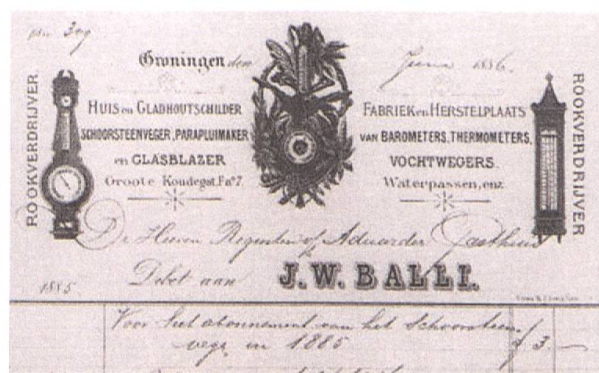 Groningen den Juni 1886.
ROOKVERDRIJVER.
HUIS en GLADHOUTSCHILDER
SCHOORSTEENVEGER, PARAPLUIMAKER
en GLASBLAZER
Groote Koudegat. Fa⁰7.
FABRIEK en HERSTELPLAATS
VAN BAROMETERS, THERMOMETERS,
VOCHTWEGERS.
Waterpassen, enz.
ROOKVERDRIJVER
De Heeren Regenten of Aduarder Gasthuis
Debet aan J. W. BALLI.
1885
Voor het abonnement van het schoorsteen
vege in 1885 f 3. —